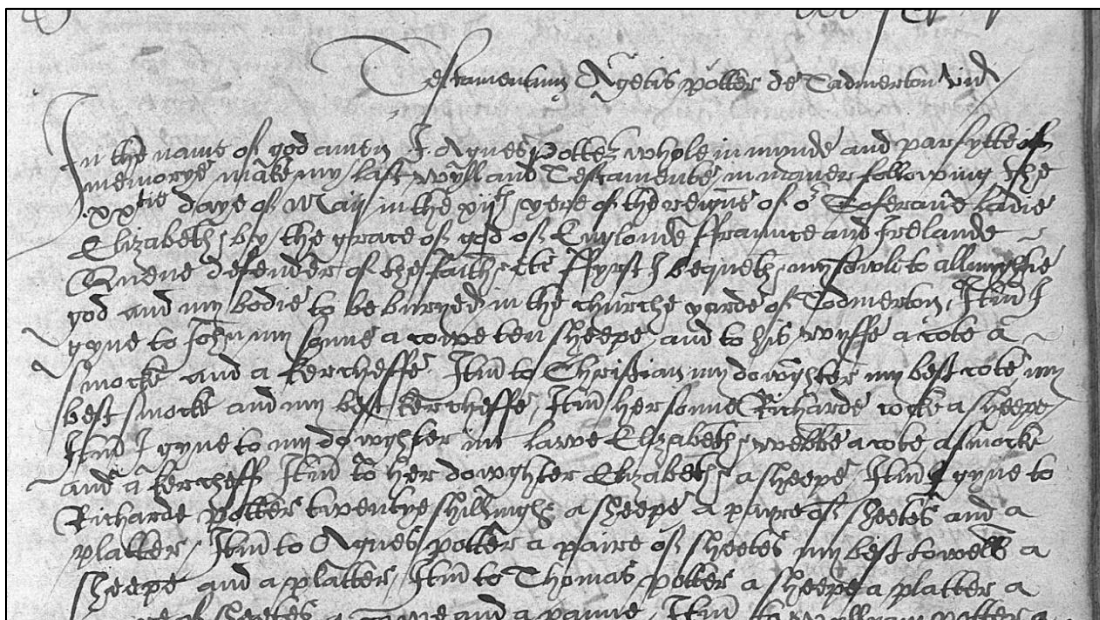 Testamentum Agetis potter de Tadmerton vid
In the name of god amen I Agnes Potter whole in mynde and parfytte of
memorye make my last wyll and Testamente in maner following the
xxtie daye of Maij in the xijth yere of the reigne of or Soferane ladie
Elizabeth by the grace of god of Englonde ffraunce and Irelande
Quene defender of the faith etc ffyrst I bequeth my sowle to allmyghtie
god and my bodie to be buryed in the churche yarde of Todmerton, Itm I
gyve to John my sonne a cowe ten sheepe and to his wyffe a cote a
smocke and a kercheffe Itm to Christian my dowghter my best cote my
best smocke and my best kercheffe, Itm her sonne Richarde cocke a sheepe
Itm I gyve to my dowghter in lawe Elizabeth webbe a cote a smocke
and a kercheff Itm to her dowghter Elizabeth a sheepe, Itm I gyve to
Richarde Potter twentye shillinghs a sheepe a payre of sheetes and a
platter, Itm to Agnes potter a paire of sheetes my best towell a
sheepe and a platter, Itm to Thomas potter a sheepe a platter a
sheetes a and a panne, Itm to potter a